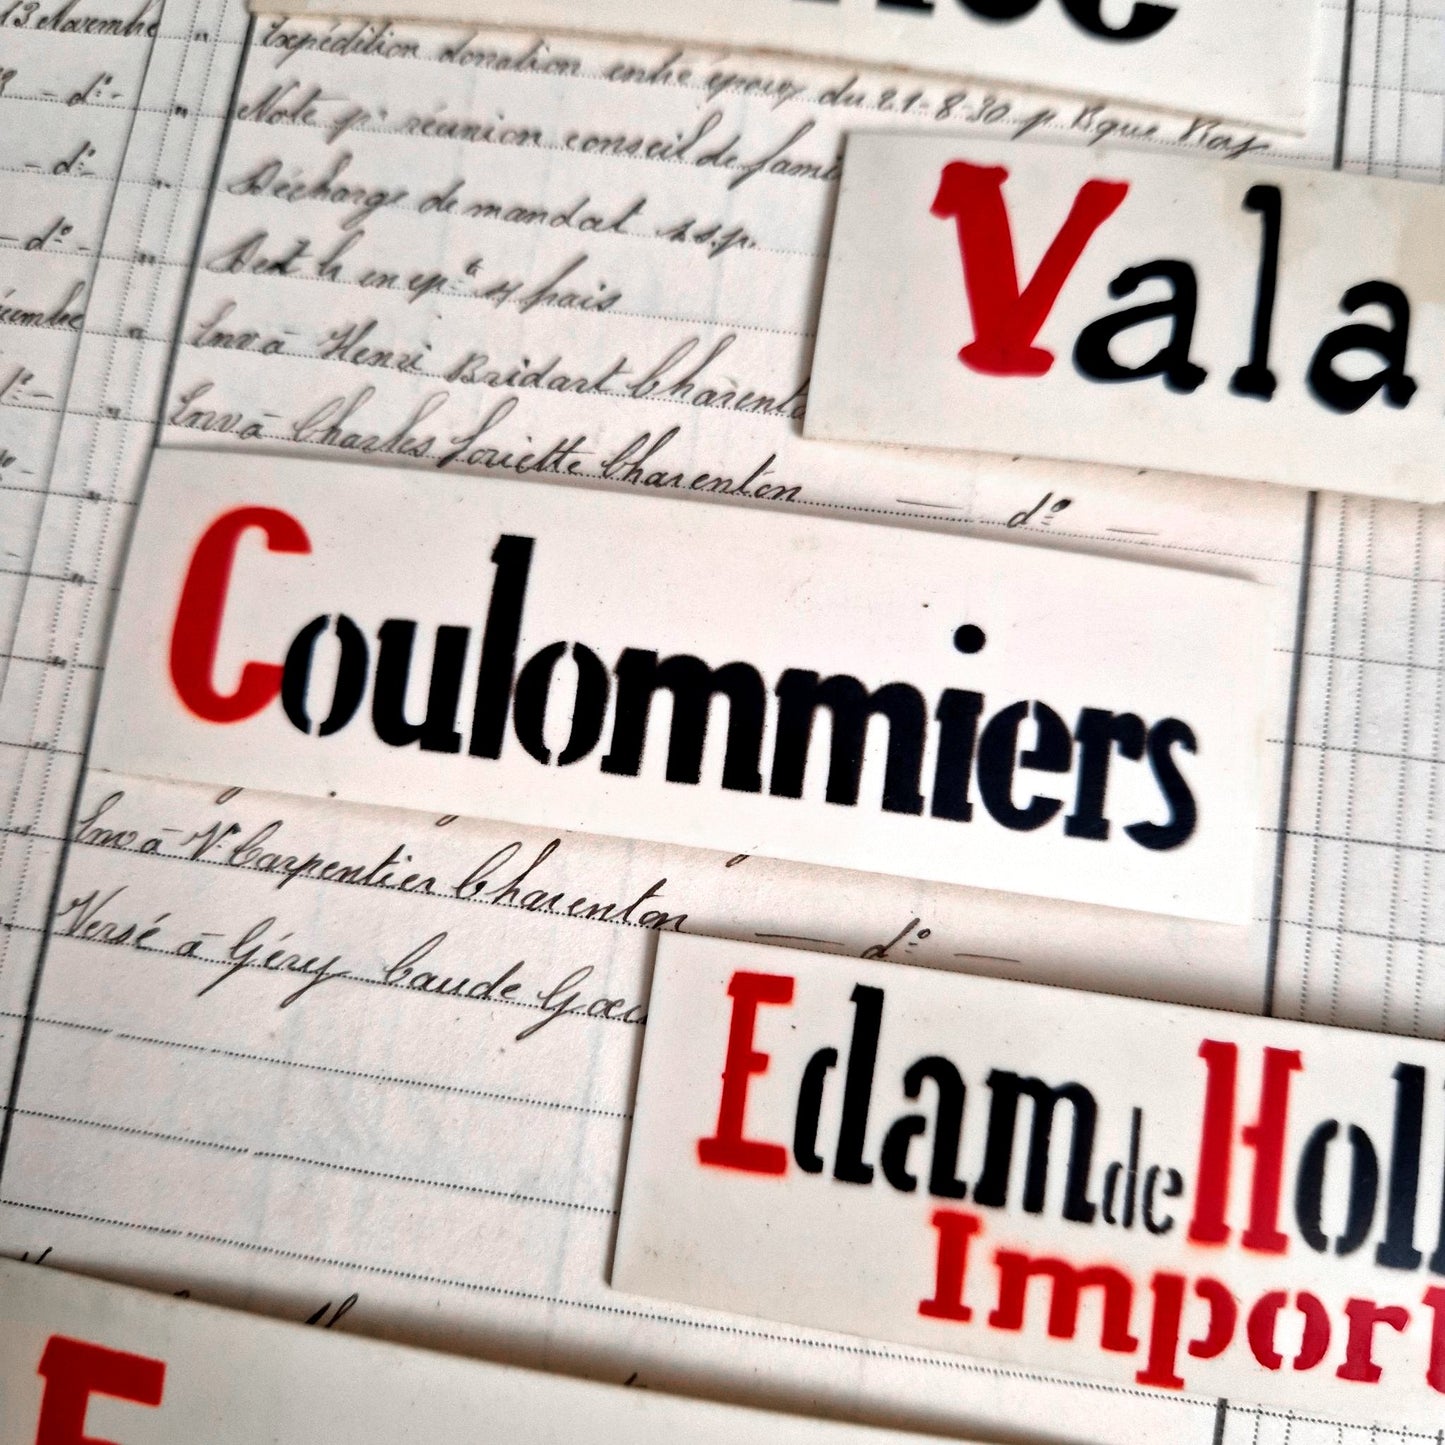 13 Novembre " Expédition donation entre époux du 21-8-30 p Bque Ray
- d° - " Note pr réunion conseil de fami
- d° " Décharge de mandat s.s.p.
- d° - "
Inv à Henri Bridart Charento
Inv à Charles Loriette Charenton — d° —
Vala
Coulommiers
Inv à Vve Carpentier Charenton — d° —
Versé à Géry Caude
Edam de Holl
Import